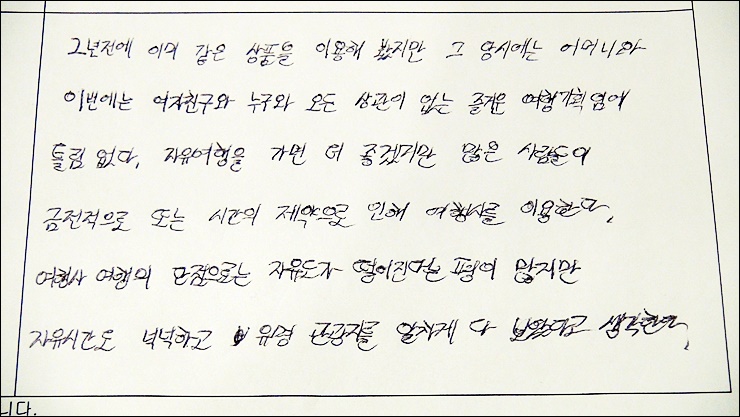 2년전에 이미 같은 상품을 이용해 봤지만 그 당시에는 어머니와
이번에는 여자친구와 누구와 오든 상관이 없는 즐거운 여행기획임에
틀림 없다. 자유여행을 가면 더 좋겠지만 많은 사람들이
금전적으로 또는 시간의 제약으로 인해 여행사를 이용한다.
여행사 여행의 단점으로는 자유도가 떨어진다는 평이 많지만
자유시간도 넉넉하고 유명 관광지를 알차게 다 보았다고 생각한다.
니다.